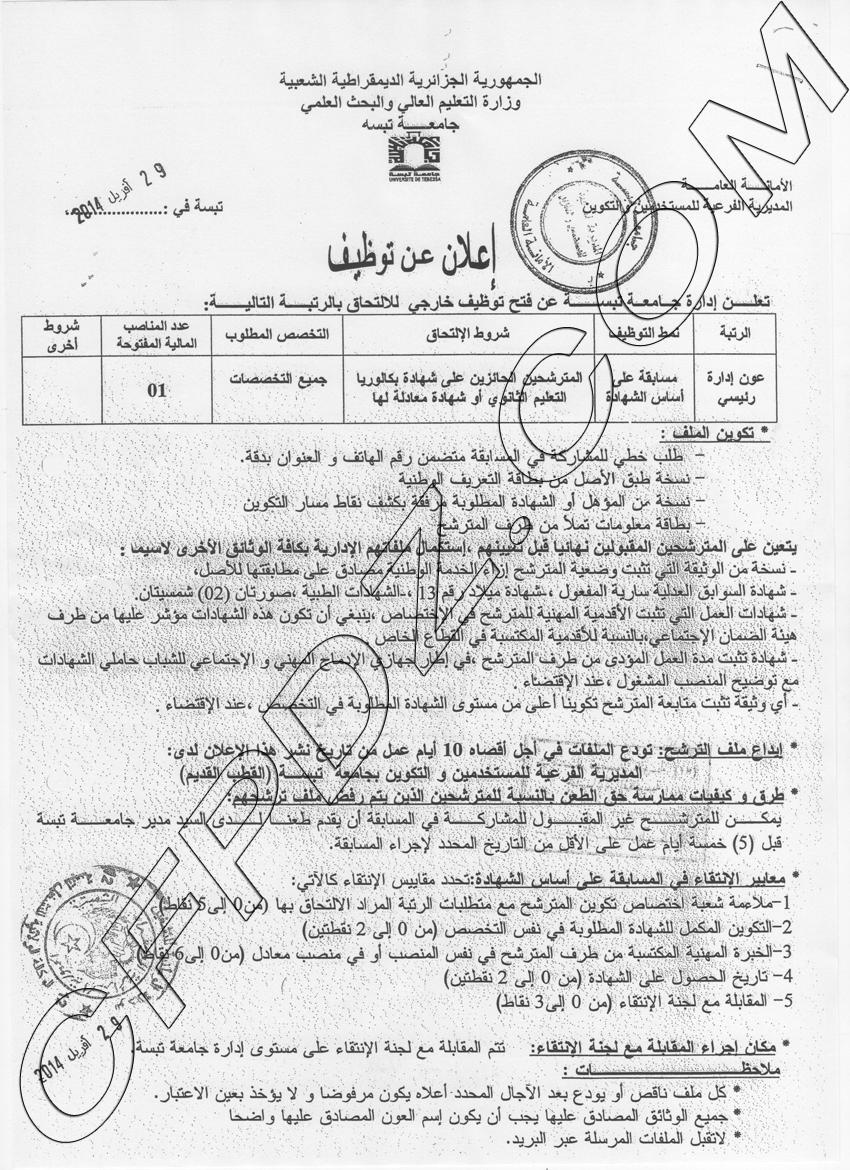 الجمهورية الجزائرية الديمقراطية الشعبية
وزارة التعليم العالي والبحث العلمي
جامعـــة تبسه
جامعة تبسة
UNIVERSITE DE TEBESSA
الأمانــة العامــة
المديرية الفرعية للمستخدمين والتكوين
تبسة في :....................،
29 أفريل 2014
إعلان عن توظيف
تعلـن إدارة جـامعـة تبســة عن فتح توظيف خارجي للالتحاق بالرتبـة التاليـــة:
الرتبة | نمط التوظيف | شروط الإلتحاق | التخصص المطلوب | عدد المناصب المالية المفتوحة | شروط أخرى
عون إدارة رئيسي | مسابقة على أساس الشهادة | المترشحين الحائزين على شهادة بكالوريا التعليم الثانوي أو شهادة معادلة لها | جميع التخصصات | 01
* تكوين الملف :
– طلب خطي للمشاركة في المسابقة متضمن رقم الهاتف و العنوان بدقة.
– نسخة طبق الأصل من بطاقة التعريف الوطنية
– نسخة من المؤهل أو الشهادة المطلوبة مرفقة بكشف نقاط مسار التكوين
– بطاقة معلومات تملأ من طرف المترشح
يتعين على المترشحين المقبولين نهائيا قبل تعيينهم ،إستكمال ملفاتهم الإدارية بكافة الوثائق الأخرى لاسيما :
ـ نسخة من الوثيقة التي تثبت وضعية المترشح إزاء الخدمة الوطنية مصادق على مطابقتها للأصل،
ـ شهادة السوابق العدلية سارية المفعول ،-شهادة ميلاد رقم 13 ،-الشهادات الطبية ،صورتان (02) شمسيتان.
ـ شهادات العمل التي تثبت الأقدمية المهنية للمترشح في الإختصاص ،ينبغي أن تكون هذه الشهادات مؤشر عليها من طرف
هيئة الضمان الإجتماعي،بالنسبة للأقدمية المكتسبة في القطاع الخاص
ـ شهادة تثبت مدة العمل المؤدى من طرف المترشح ،في إطار جهازي الإدماج المهني و الإجتماعي للشباب حاملي الشهادات
مع توضيح المنصب المشغول ،عند الإقتضاء .
ـ أي وثيقة تثبت متابعة المترشح تكوينا أعلى من مستوى الشهادة المطلوبة في التخصص ،عند الإقتضاء .
* إيداع ملف الترشح: تودع الملفات في أجل أقصاه 10 أيام عمل من تاريخ نشر هذا الإعلان لدى:
المديرية الفرعية للمستخدمين و التكوين بجامعة تبســة (القطب القديم)
* طرق و كيفيات ممارسة حق الطعن بالنسبة للمترشحين الذين يتم رفض ملف ترشيحهم:
يمكـــن للمترشـــح غير المقبـول للمشاركـــة في المسابقة أن يقدم طعنـــا لـــدى السيد مدير جامعـــة تبسة
قبل (5) خمسة أيام عمل على الأقل من التاريخ المحدد لإجراء المسابقة.
* معايير الإنتقاء في المسابقة على أساس الشهادة:تحدد مقاييس الإنتقاء كالآتي:
1-ملاءمة شعبة اختصاص تكوين المترشح مع متطلبات الرتبة المراد الالتحاق بها (من0 إلى5 نقاط)
2-التكوين المكمل للشهادة المطلوبة في نفس التخصص (من 0 إلى 2 نقطتين)
3-الخبرة المهنية المكتسبة من طرف المترشح في نفس المنصب أو في منصب معادل (من0 إلى6 نقاط)
4- تاريخ الحصول على الشهادة (من 0 إلى 2 نقطتين)
5- المقابلة مع لجنة الإنتقاء (من 0 إلى3 نقاط)
29 أفريل 2014
* مكان إجراء المقابلة مع لجنة الإنتقاء: تتم المقابلة مع لجنة الإنتقاء على مستوى إدارة جامعة تبسة.
ملاحظـــــــــات :
* كل ملف ناقص أو يودع بعد الآجال المحدد أعلاه يكون مرفوضا و لا يؤخذ بعين الاعتبار.
* جميع الوثائق المصادق عليها يجب أن يكون إسم العون المصادق عليها واضحا
* لاتقبل الملفات المرسلة عبر البريد.
CFPDZ.COM